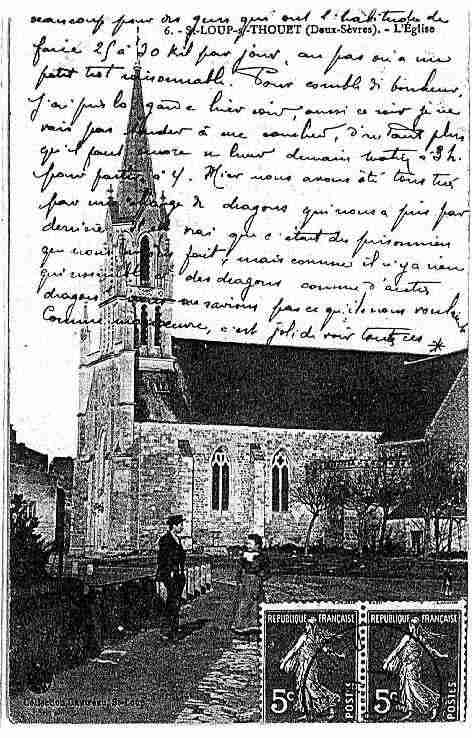 beaucoup pour des gens qui ont l'habitude de
6. - St-LOUP-s-THOUET (Deux-Sèvres). - L'Église
faire 25 à 30 kil par jour, au pas ou à un
petit trot raisonnable. Pour comble de bonheur,
j'ai pris la garde hier soir, aussi ce soir je ne
vais pas tarder à me coucher, d'autant plus
qu'il faut encore se lever demain matin à 3h.
pour partir à 4. Hier nous avons été tous
par une de dragons qui nous a pris par
derrière vrai que c'était des prisonniers
que nous fait, mais comme il n'y a rien
qui des dragons comme d'autres
dragons, nous ne savions pas ce qu'ils nous
Comme manoeuvre, c'est joli de voir toutes ces *
REPUBLIQUE FRANÇAISE
5c
REPUBLIQUE FRANÇAISE
5c
Collection St-Loup